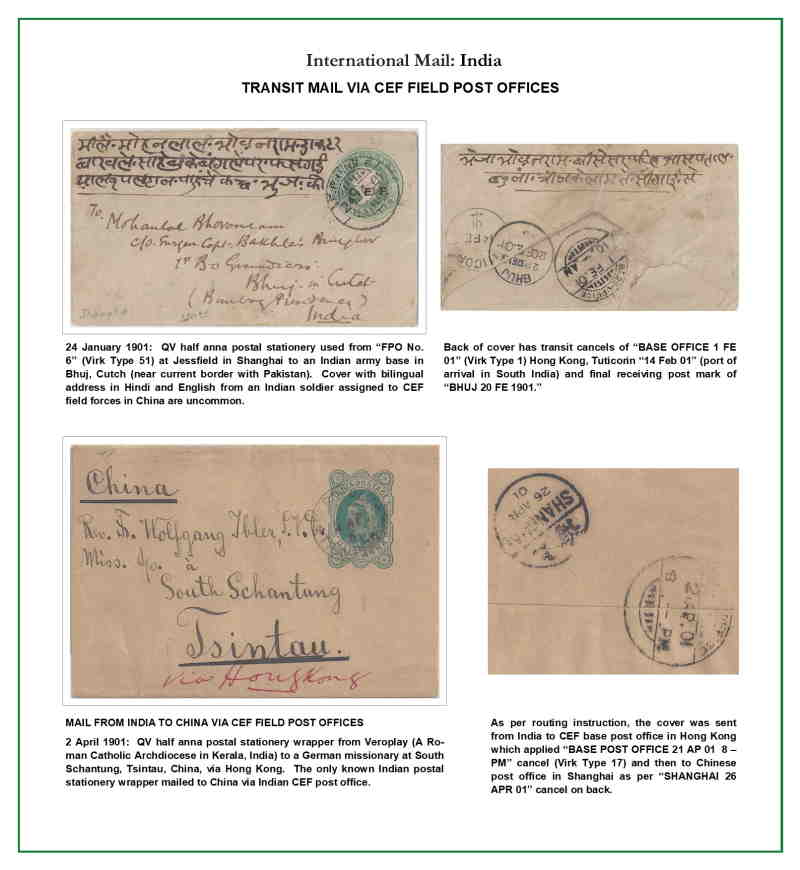 International Mail: India
TRANSIT MAIL VIA CEF FIELD POST OFFICES
To,
Mohanlal Bhovanram
c/o Surgeon Capt.
1st Bo Grenadiers
Bhuj in Cutch
(Bombay Presidency)
India
BHUJ
24 January 1901: QV half anna postal stationery used from “FPO No.
6” (Virk Type 51) at Jessfield in Shanghai to an Indian army base in
Bhuj, Cutch (near current border with Pakistan). Cover with bilingual
address in Hindi and English from an Indian soldier assigned to CEF
field forces in China are uncommon.
Back of cover has transit cancels of “BASE OFFICE 1 FE
01” (Virk Type 1) Hong Kong, Tuticorin “14 Feb 01” (port of
arrival in South India) and final receiving post mark of
“BHUJ 20 FE 1901.”
China
Rev. Fr. Wolfgang
Miss. ap. à
South Schantung
Tsintau.
via Hongkong
SHANGHAI
26 APR
01
MAIL FROM INDIA TO CHINA VIA CEF FIELD POST OFFICES
2 April 1901: QV half anna postal stationery wrapper from Veroplay (A Ro-
man Catholic Archdiocese in Kerala, India) to a German missionary at South
Schantung, Tsintau, China, via Hong Kong. The only known Indian postal
stationery wrapper mailed to China via Indian CEF post office.
As per routing instruction, the cover was sent
from India to CEF base post office in Hong Kong
which applied “BASE POST OFFICE 21 AP 01 8 –
PM” cancel (Virk Type 17) and then to Chinese
post office in Shanghai as per “SHANGHAI 26
APR 01” cancel on back.